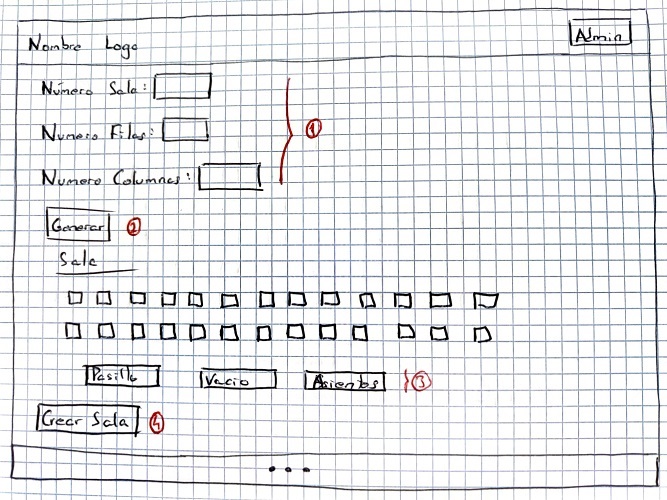 Nombre Logo Admin
Número Sala:
Numero Filas:
Numero Columnas: 1
Generar 2
Sala
Pasillo Vacio Asientos 3
Crear Sala 4
...